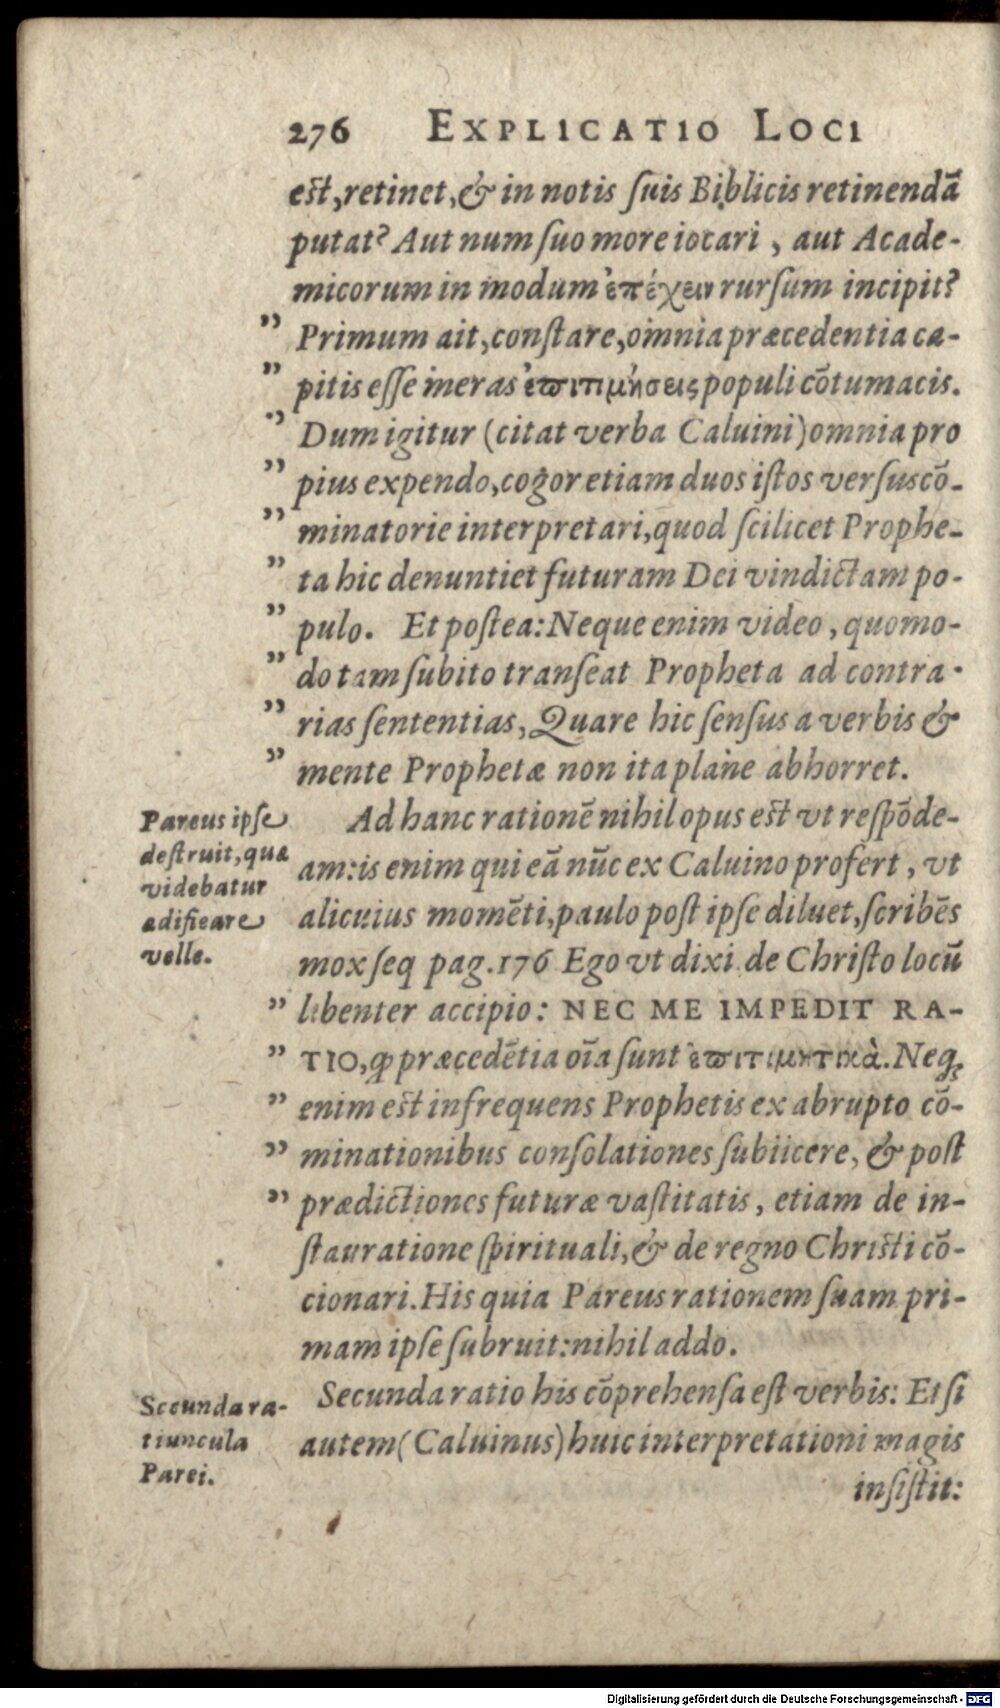 276 EXPLICATIO LOCI
est, retinet, & in notis ſuis Biblicis retinendā
putat? Aut num ſuo more iocari, aut Acade-
micorum in modum ἐπέχειν rurſum incipit?
” Primum ait, conſtare, omnia præcedentia ca-
” pitis eſſe meras ἐπιτιμήσεις populi cōtumacis.
” Dum igitur (citat verba Caluini) omnia pro
” pius expendo, cogor etiam duos iſtos verſus cō-
” minatorie interpretari, quod ſcilicet Prophe-
” ta hic denuntiet futuram Dei vindictam po-
” pulo. Et poſtea: Neque enim video, quomo-
” do tam ſubito tranſeat Propheta ad contra-
” rias ſententias, Quare hic ſenſus a verbis &
” mente Prophetæ non ita plane abhorret.
Pareus ipſe
deſtruit, quæ
videbatur
ædificare
velle.
Ad hanc rationē nihil opus est vt reſpōde-
am: is enim qui eā nūc ex Caluino profert, vt
alicuius momēti, paulo poſt ipſe diluet, ſcribēs
mox ſeq pag. 176 Ego vt dixi de Chriſto locū
” libenter accipio: NEC ME IMPEDIT RA-
” TIO, ꝙ præcedētia oīa ſunt ἐπιτιμητικὰ. Neq;
” enim est infrequens Prophetis ex abrupto cō-
” minationibus conſolationes ſubiicere, & poſt
” prædictiones futuræ vaſtitatis, etiam de in-
ſtauratione ſpirituali, & de regno Christi cō-
cionari. His quia Pareus rationem ſuam pri-
mam ipſe ſubruit: nihil addo.
Secunda ra-
tiuncula
Parei.
Secunda ratio his cōprehenſa eſt verbis: Et ſi
autem (Caluinus) huic interpretationi magis
inſiſtit:
Digitalisierung gefördert durch die Deutsche Forschungsgemeinschaft - DFG